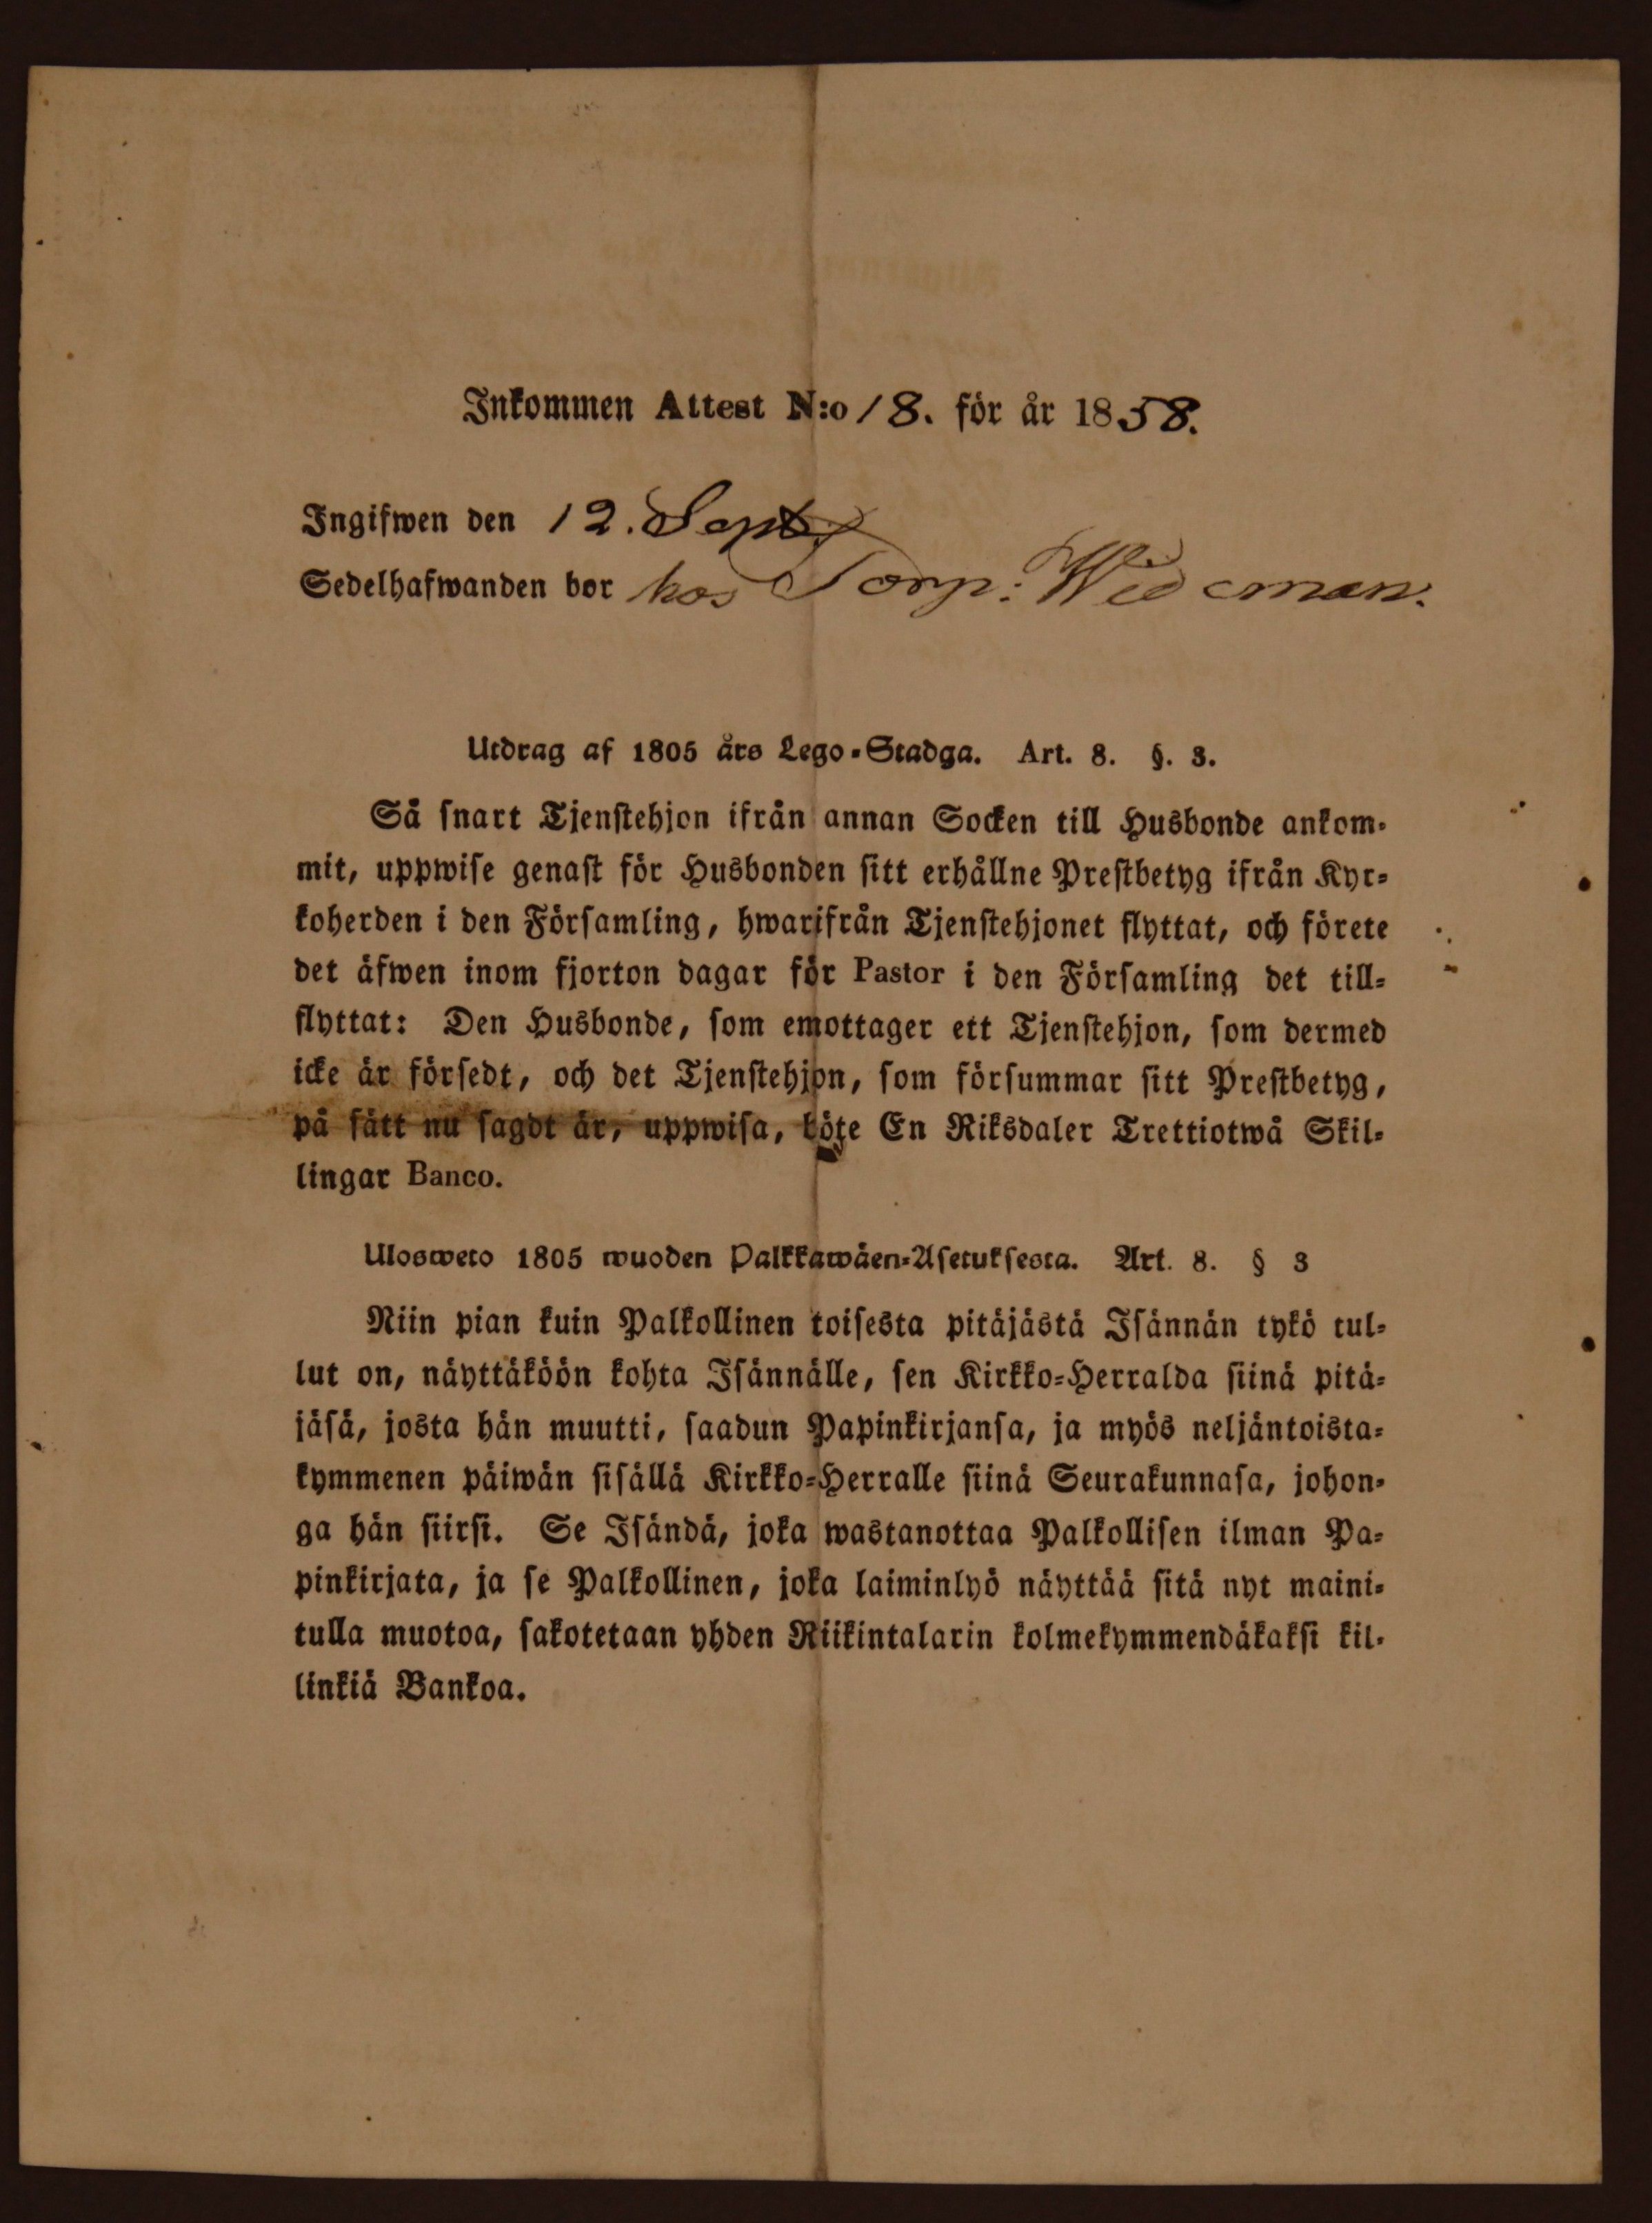 Inkommen Attest N:o 18. för år 1858.
Ingifwen den 12. Sept.
Sedelhafwanden bor hos Torp: Wideman.
Utdrag af 1805 års Lego-Stadga. Art. 8. §. 3.
Så snart Tjenstehjon ifrån annan Socken till Husbonde ankom-
mit, uppwise genast för Husbonden sitt erhållne Prestbetyg ifrån Kyr-
koherden i den Församling, hwarifrån Tjenstehjonet flyttat, och förete
det äfwen inom fjorton dagar för Pastor i den Församling det till-
flyttat: Den Husbonde, som emottager ett Tjenstehjon, som dermed
icke är försedt, och det Tjenstehjon, som försummar sitt Prestbetyg,
på sätt nu sagdt är, uppwisa, böte En Riksdaler Trettiotwå Skil-
lingar Banco.
Ulosweto 1805 wuoden Palkkawäen-Asetuksesta. Art. 8. § 3
Niin pian kuin Palkollinen toisesta pitäjästä Isännän tykö tul-
lut on, näyttäköön kohta Isännälle, sen Kirkko-Herralda siinä pitä-
jäsä, josta hän muutti, saadun Papinkirjansa, ja myös neljäntoista-
kymmenen päiwän sisällä Kirkko-Herralle siinä Seurakunnasa, johon-
ga hän siirsi. Se Isändä, joka wastanottaa Palkollisen ilman Pa-
pinkirjata, ja se Palkollinen, joka laiminlyö näyttää sitä nyt maini-
tulla muotoa, sakotetaan yhden Riikintalarin kolmekymmendäkaksi kil-
linkiä Bankoa.